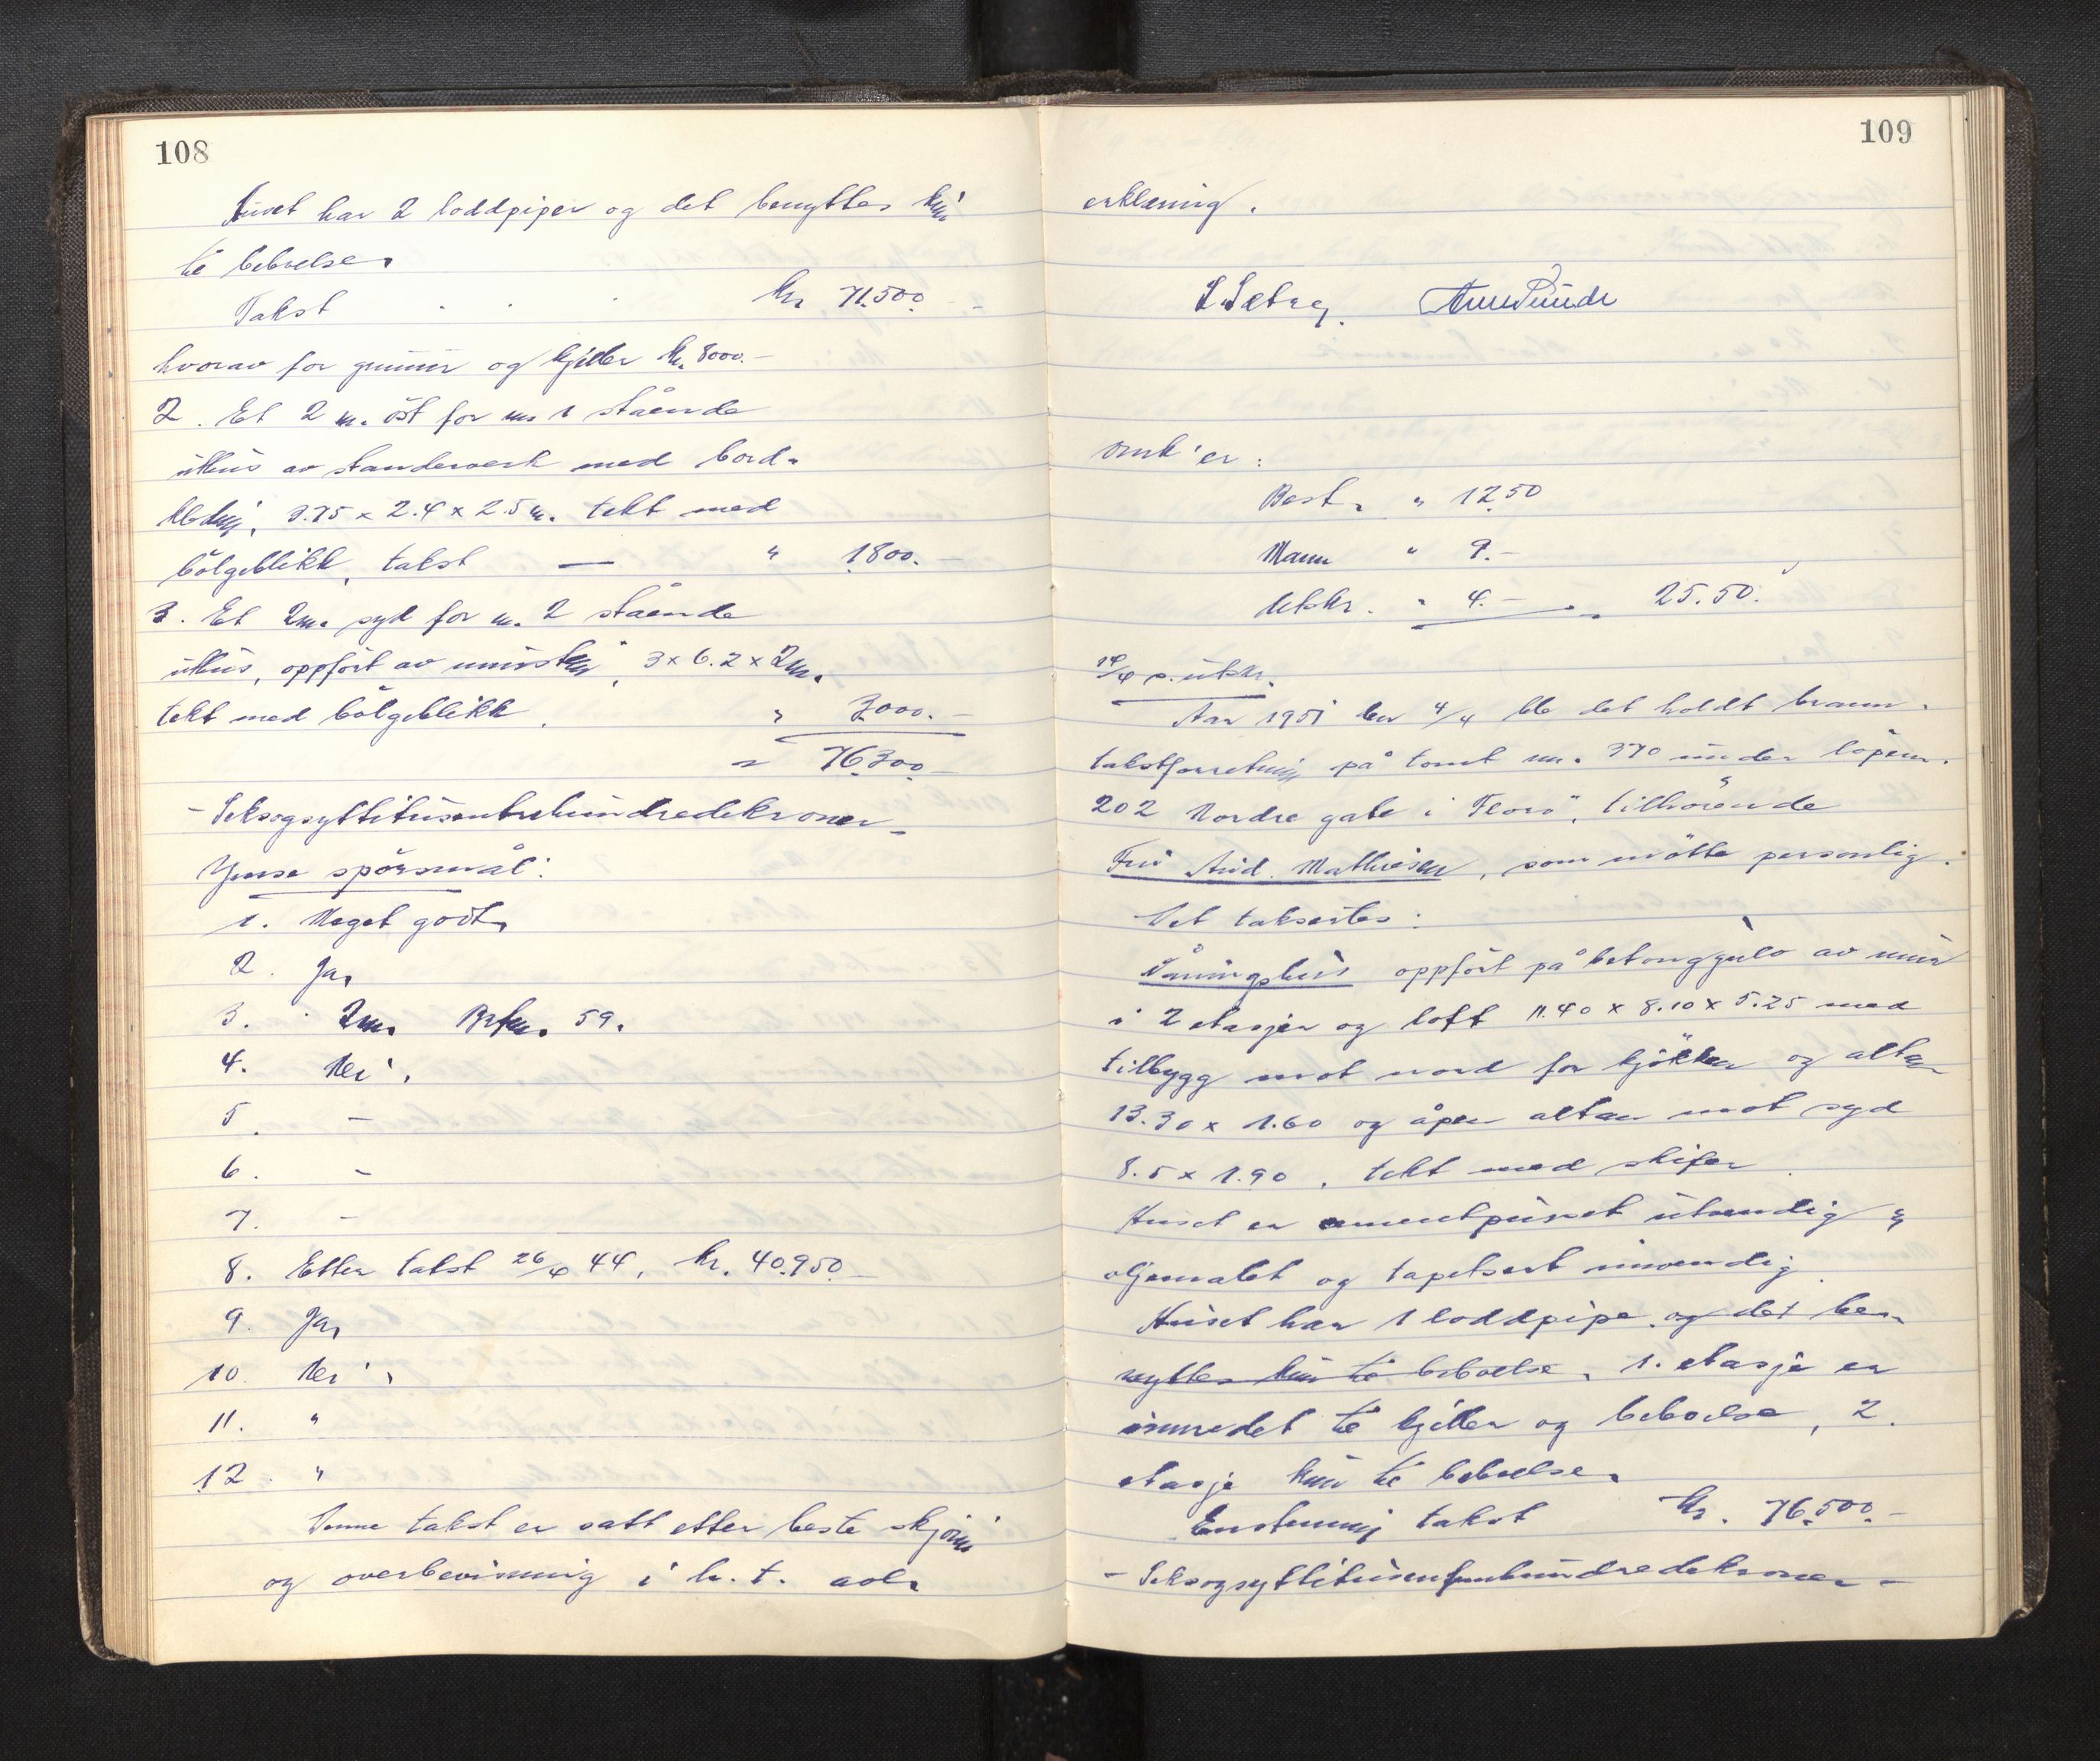 108
Huset har 2 loddpiper og det benyttes kun
til beboelse.
Takst . . . kr. 71.500.-
hvorav for grunnmur og kjeller kr. 8000.-
2. Et 2 m. öst for nr. 1 stående
uthus av standerverk med bord-
kledning, 3.75 x 2.4 x 2.5 m. tekt med
bölgeblikk, takst — " 1.800.-
3. Et 2m. syd for nr. 2 stående
uthus, oppfört av murstein, 3 x 6.2 x 2m.
tekt med bölgeblikk. " 3000.-
" 76.300.-
- Seksogsyttitusentrehundredekroner -
Gjense spörsmål:
1. Meget godt.
2. Ja.
3. 2m. Brfnr. 59.
4. Nei.
5. -
6. -
7. -
8. Etter takst 26/6 44, kr. 40.950.-
9. Ja.
10. Nei.
11. "
12. "
Denne takst er satt etter beste skjönn
og overbevisning i h.t. avl.
109
erklæring.
S. Sætrey. Arne Runde
Omk'er:
Best. " 12.50
Mann " 9.-
Utskr. " 4.- " 25.50.
14/4 s. utskr.
Aar 1951 den 4/4 ble det holdt brann-
takstforretning på tomt nr. 370 under löpenr.
202 Nordre gate i Florö, tilhörende
Fru And. Mathiesen, som mötte personlig.
Det takseres:
Våningshus oppfört på betonggulv av mur
i 2 etasjer og loft 11.40 x 8.10 x 5.25 med
tilbygg mot nord for kjökken og altan
13.30 x 1.60 og åpen altan mot syd
8.5 x 1.90, tekt med skifer.
Huset er cementpusset utvendig og
oljemalet og tapetsert innvendig.
Huset har 1 loddpipe. og det be-
nyttes kun til beboelse. 1. etasje er
innredet til kjeller og beboelse, 2.
etasje kun til beboelse.
Enstemmig takst kr. 76.500.-
- Seksogsyttitusenfemhundredekroner -